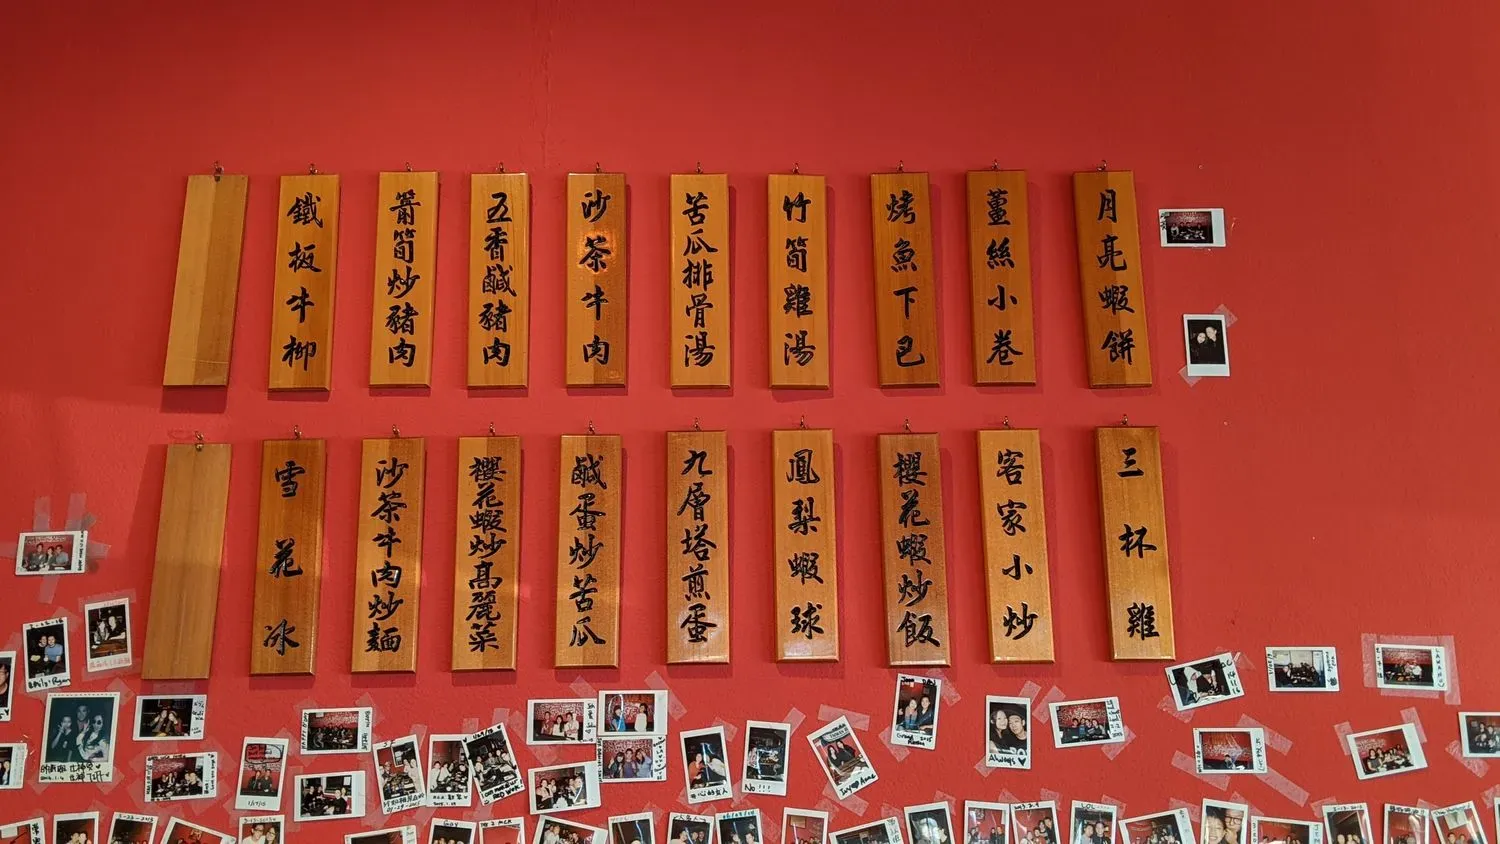 月亮蝦餅
薑絲小卷
烤魚下巴
竹筍雞湯
苦瓜排骨湯
沙茶牛肉
五香鹹豬肉
箭筍炒豬肉
鐵板牛柳
三杯雞
客家小炒
櫻花蝦炒飯
鳳梨蝦球
九層塔煎蛋
鹹蛋炒苦瓜
櫻花蝦炒高麗菜
沙茶牛肉炒麵
雪花冰
Always
No!!!
LOL